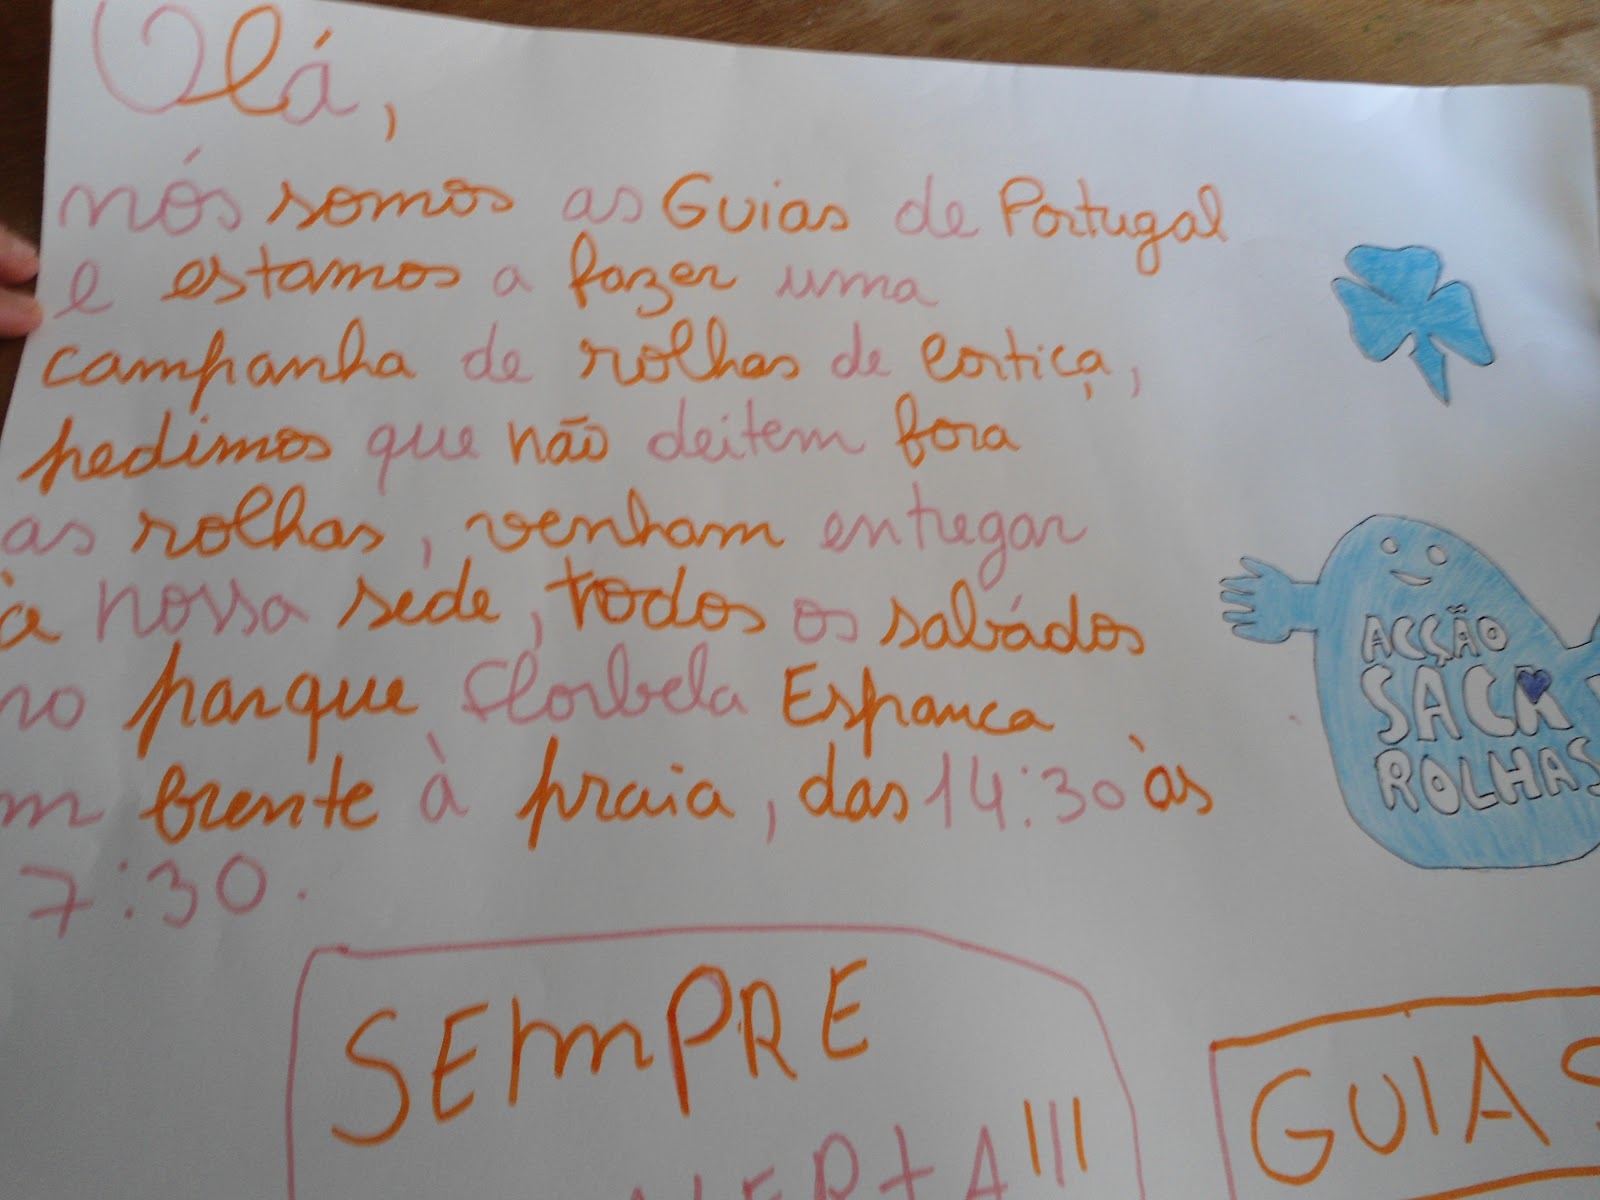 Olá,
nós somos as Guias de Portugal
e estamos a fazer uma
campanha de rolhas de cortiça,
pedimos que não deitem fora
as rolhas, venham entregar
à nossa sede, todos os sabádos
no parque Florbela Espanca
m frente à praia, das 14:30 às
7:30.
ACÇÃO
SACA
ROLHAS
SEMPRE
ALERTA!!!
GUIAS